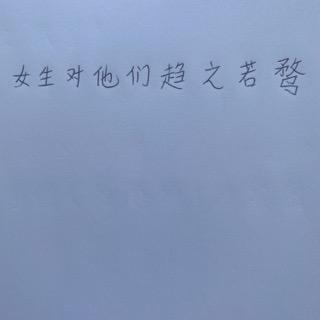 女生对他们趋之若骛